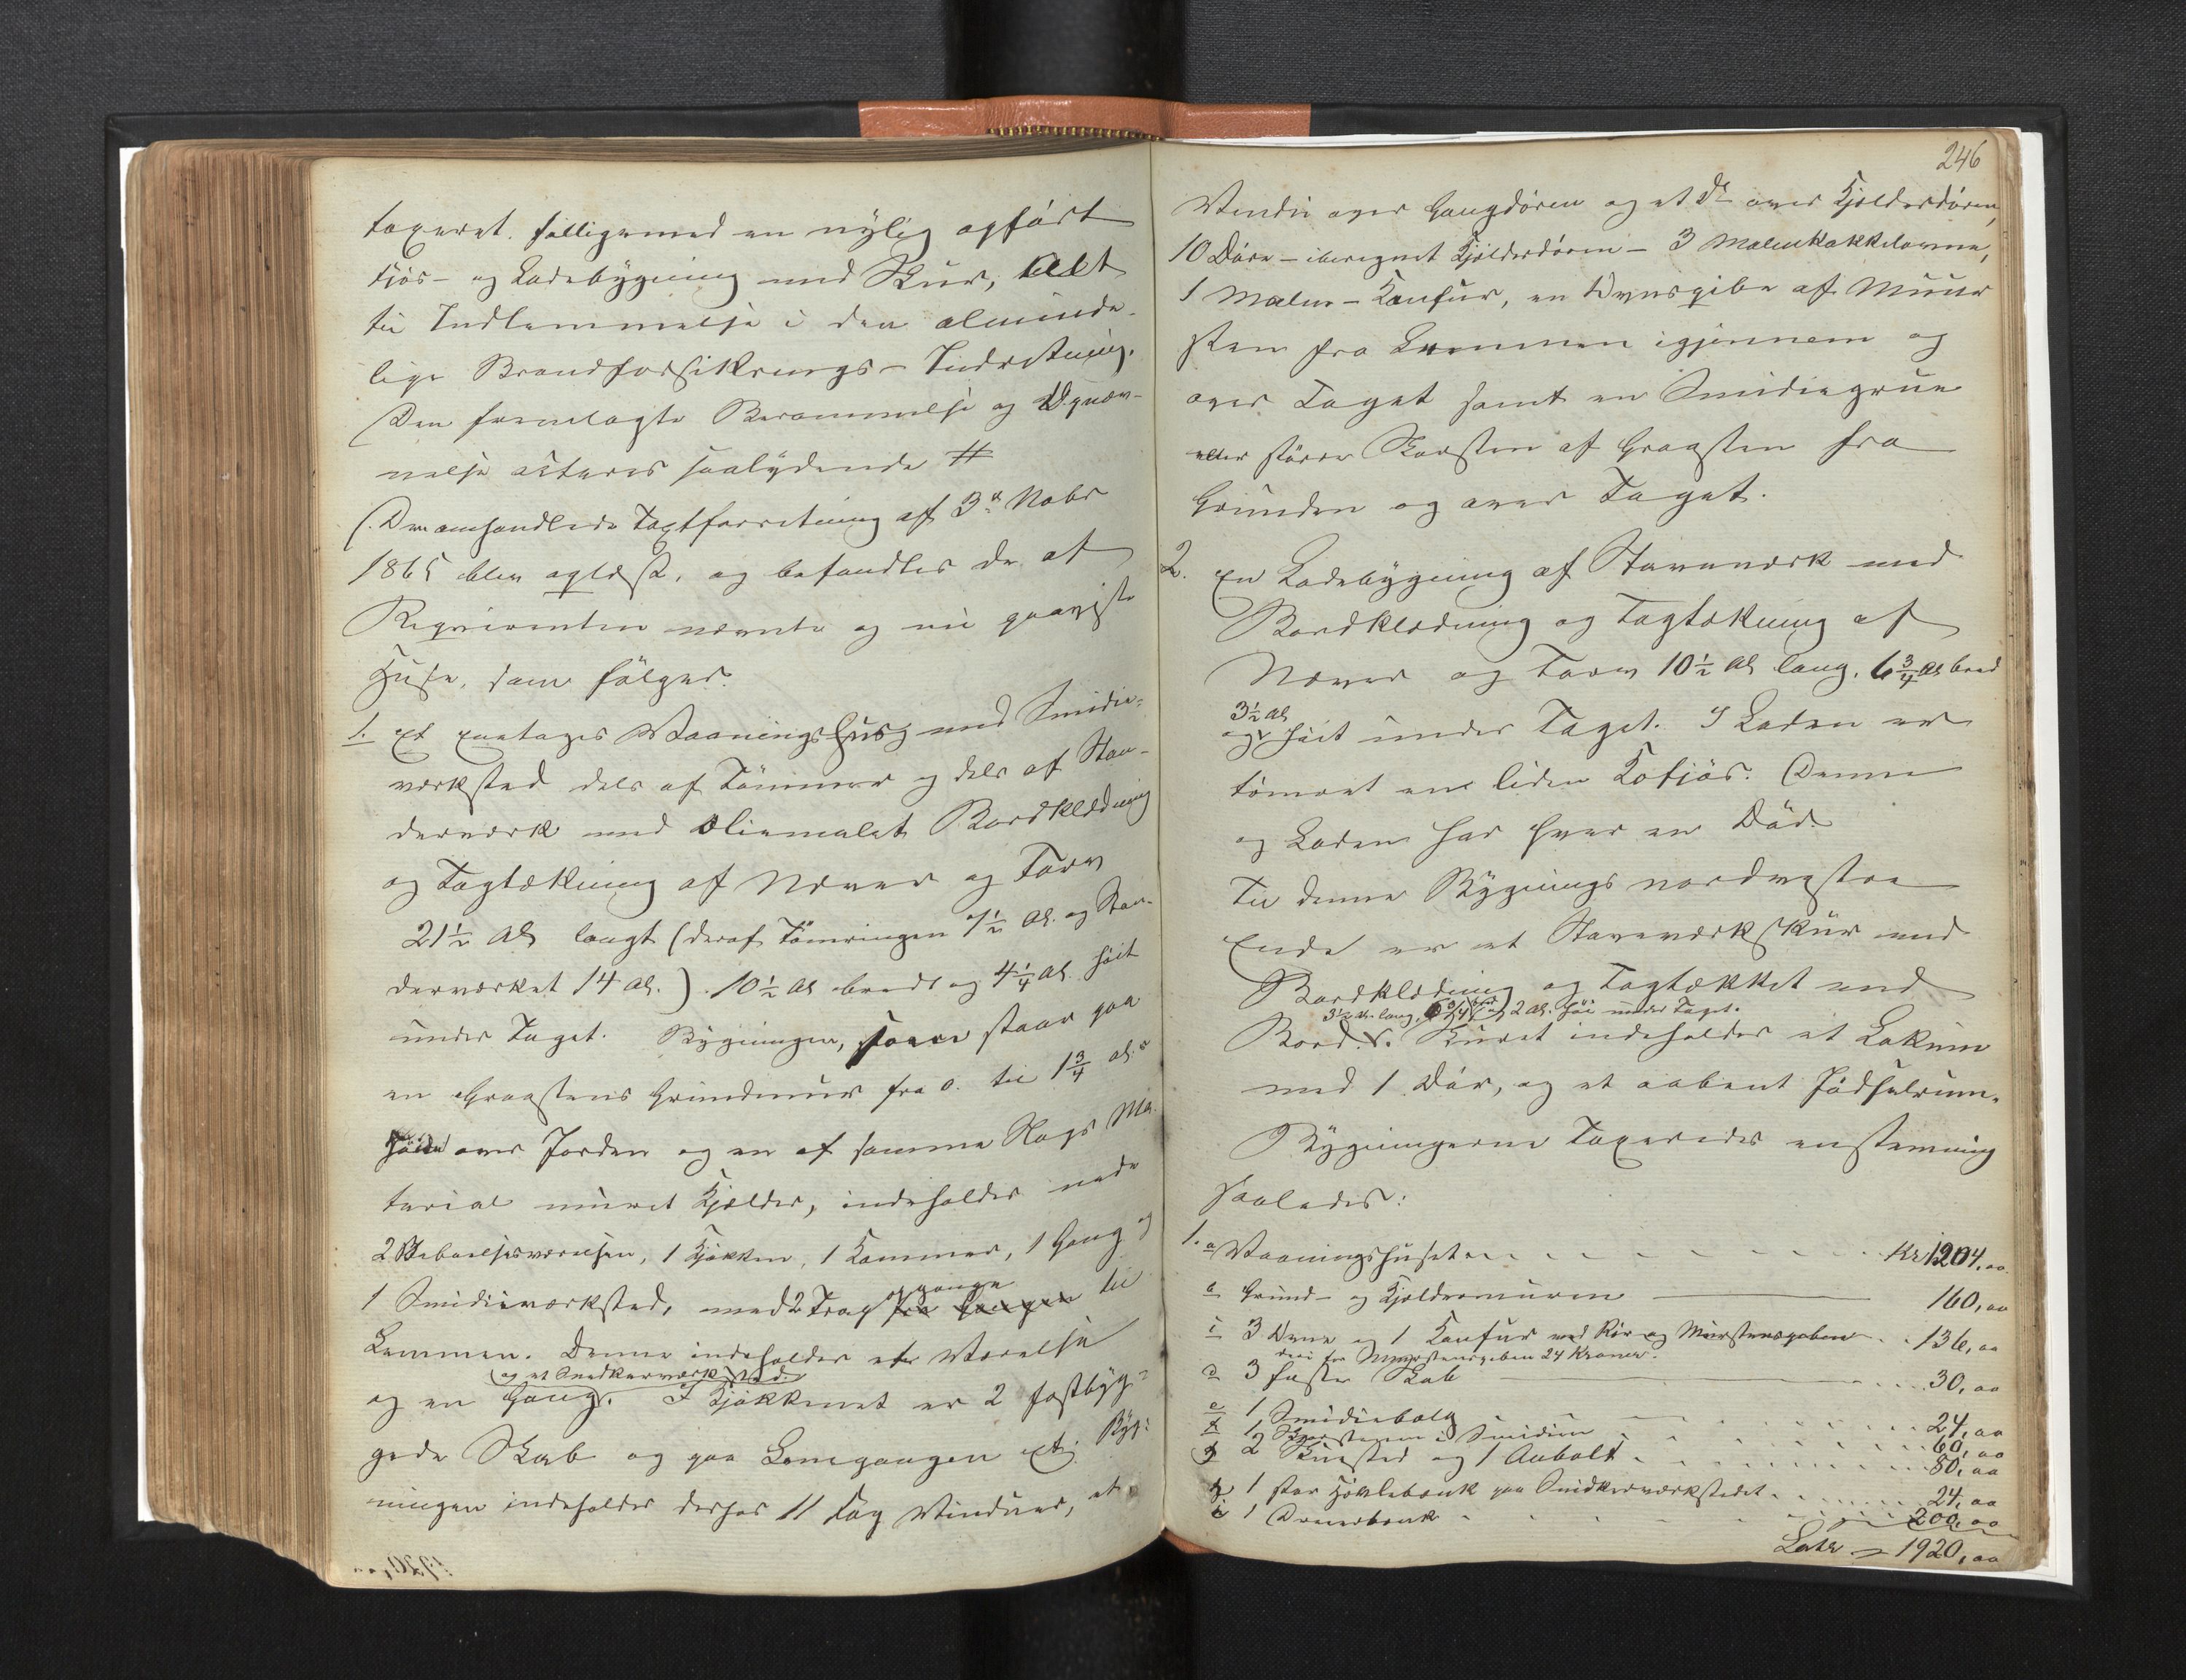 taxeret. følligemed en nylig opført
Fjøs- og Ladebygning med Skur, Alt
til Indlemmelse i den alminde-
lige Brandforsikrings-Indretning.
Den fremlagte Berammelse og Opnæv-
nelse acteres saalydende #
(Den omhandlede Taxtforretning af 3die Novbr
1865 blev oplæst, og befandtes de af
Reqvirenten nævnte og nu paaviste
Huse, som følger.
1. Et Enetages Vaaningshus med Smidie-
værksted dels af Tømmer og dels af Stan-
derværk med Oliemalet Bordklædning
og Tagtækning af Næver og Torv
21½ Al langt (deraf Tømringen 7½ Al. og Stan-
derværket 14 Al.). 10½ Al bredt og 4¼ Al. høit
under Taget. Bygningen, som staar paa
en Graastens Grundmur fra 0. til 1¾ Al.s
Høide over Jorden og en af samme Slags Ma-
terial muret Kjelder, indeholder nede
2 Beboelsesværelser, 1 Kjøkken, 1 Kammer, 1 Gang og
opgange
1 Smidieværksted, med 2 Trap fra Gangen til
Lemmen. Denne indeholder et Værelse
og et Snedkerværksted.
og en Gang. I Kjøkkenet er 2 fastbyg-
gede Skab og paa Lemgangen et; Byg-
ningen indeholder derhos 11 Fag Vinduer, et
246
Vindu over Gangdøren og et Do over Kjelderdøren,
10 Døre - iberegnet Kjelderdøren - 3 Malmkakkelovne,
1 Malm-Komfur, en Ovnspibe af Muur
sten fra Lemmen igjennem og
over Taget samt en Smidiegrue
eller større Skorsten af Graasten fra
Grunden og over Taget.
2. En Ladebygning af Staveværk med
Bordklædning og Tagtækning af
Næver og Torv 10½ Al lang, 6¾ Al bred
3½ Al
og høit under Taget. I Laden er
tømret en liden Kofjøs. Denne
og Laden har hver en Dør.
Til denne Bygnings nordvestre
Ende er et Staveværkskur med
Bordklædning og Tagtækket med
3½ Al. lang, 6¾ bred og 2 Al. høi under Taget.
Bord. Skuret indeholder et Lokum
med 1 Dør, og et aabent Fødselrum.
Bygningerne Taxeredes enstemmig
saaledes:
1. a Vaaningshuset Kr 1204,00
b Grund- og Kjeldermuren 160,00
c 3 Ovne og 1 Komfur med Rør og Murstenspiben 136,00
deri for Murstenspiben 24 Kroner.
d 3 faste Skab 30,00
e 1 Smidiebælg 24,00
f 1 Skorstenen i Smidien 60,00
g 2 Skrusted og 1 Ambolt 80,00
h 1 stor Høvlebænk paa Snidkerværkstedet 24,00
i 1 Dreierbænk 200,00
Lateris 1920,00